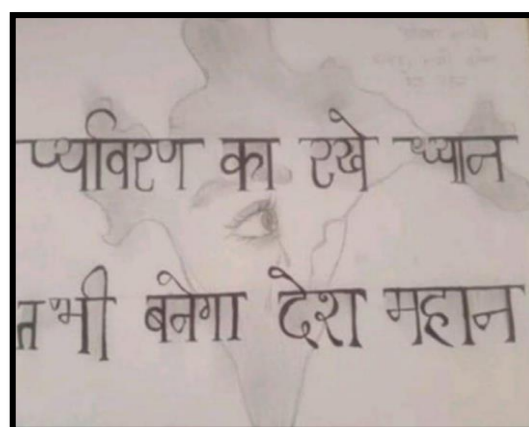 प्यावरण का रखे ध्यान
तभी बनेगा देश महान